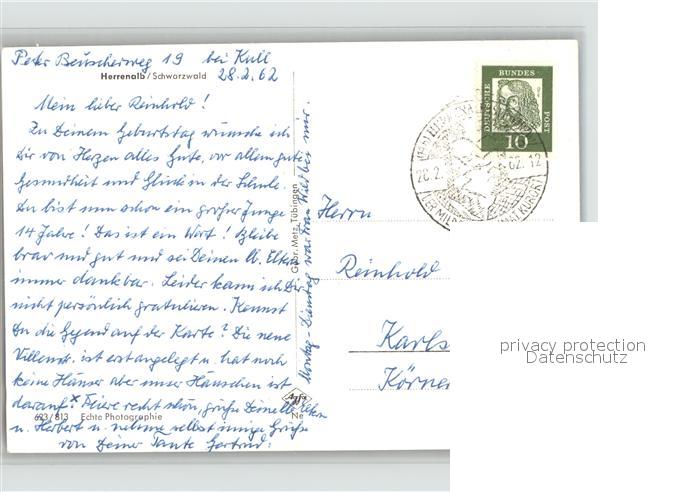 Peter Beuscherweg 19 bei Kull
Herrenalb/Schwarzwald
28.2.62
Mein lieber Reinhold!
Zu Deinem Geburtstag wünsche ich
Dir von Herzen alles Gute, vor allem gute
Gesundheit und Glück in der Schule.
Du bist nun schon ein großer Junge
14 Jahre! Das ist ein Wort! Bleibe
brav und gut und sei Deinen lb. Eltern
immer dankbar. Leider kann ich Dir
nicht persönlich gratulieren. Kennst
Du die Gegend auf der Karte? Die neue
Villenk. ist erst angelegt u. hat noch
keine Häuser aber unser Häuschen ist
darauf. x Feiere recht schön, grüße Deine lb. Eltern
u. Herbert u. nehme selbst innige Grüße
von Deiner Tante Gertrud.
623/813 Echte Photographie
Gebr. Metz, Tübingen
Montag - Dienstag war Frau Wild bei mir.
Agfa
Ne
DEUTSCHE BUNDES POST
10
28.2. 62.12
Herrn
Reinhold
Karls
Körner
privacy protection
Datenschutz